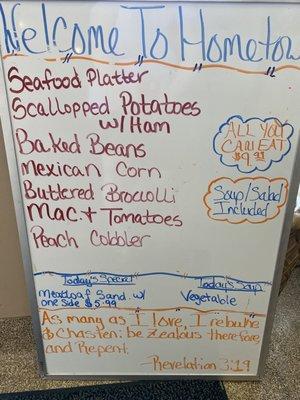 Welcome To Hometow
Seafood Platter
Scallopped Potatoes
w/Ham
Baked Beans
Mexican Corn
Buttered Broccolli
Mac. + Tomatoes
Peach Cobbler
ALL YOU
CAN EAT
$9.99
Soup/Salad
Included
Today's Special
Meatloaf Sand. w/
one side $5.99
Today's Soup
Vegetable
As many as I love, I rebuke
& Chasten: be zealous therefore,
and Repent.
Revelation 3:19